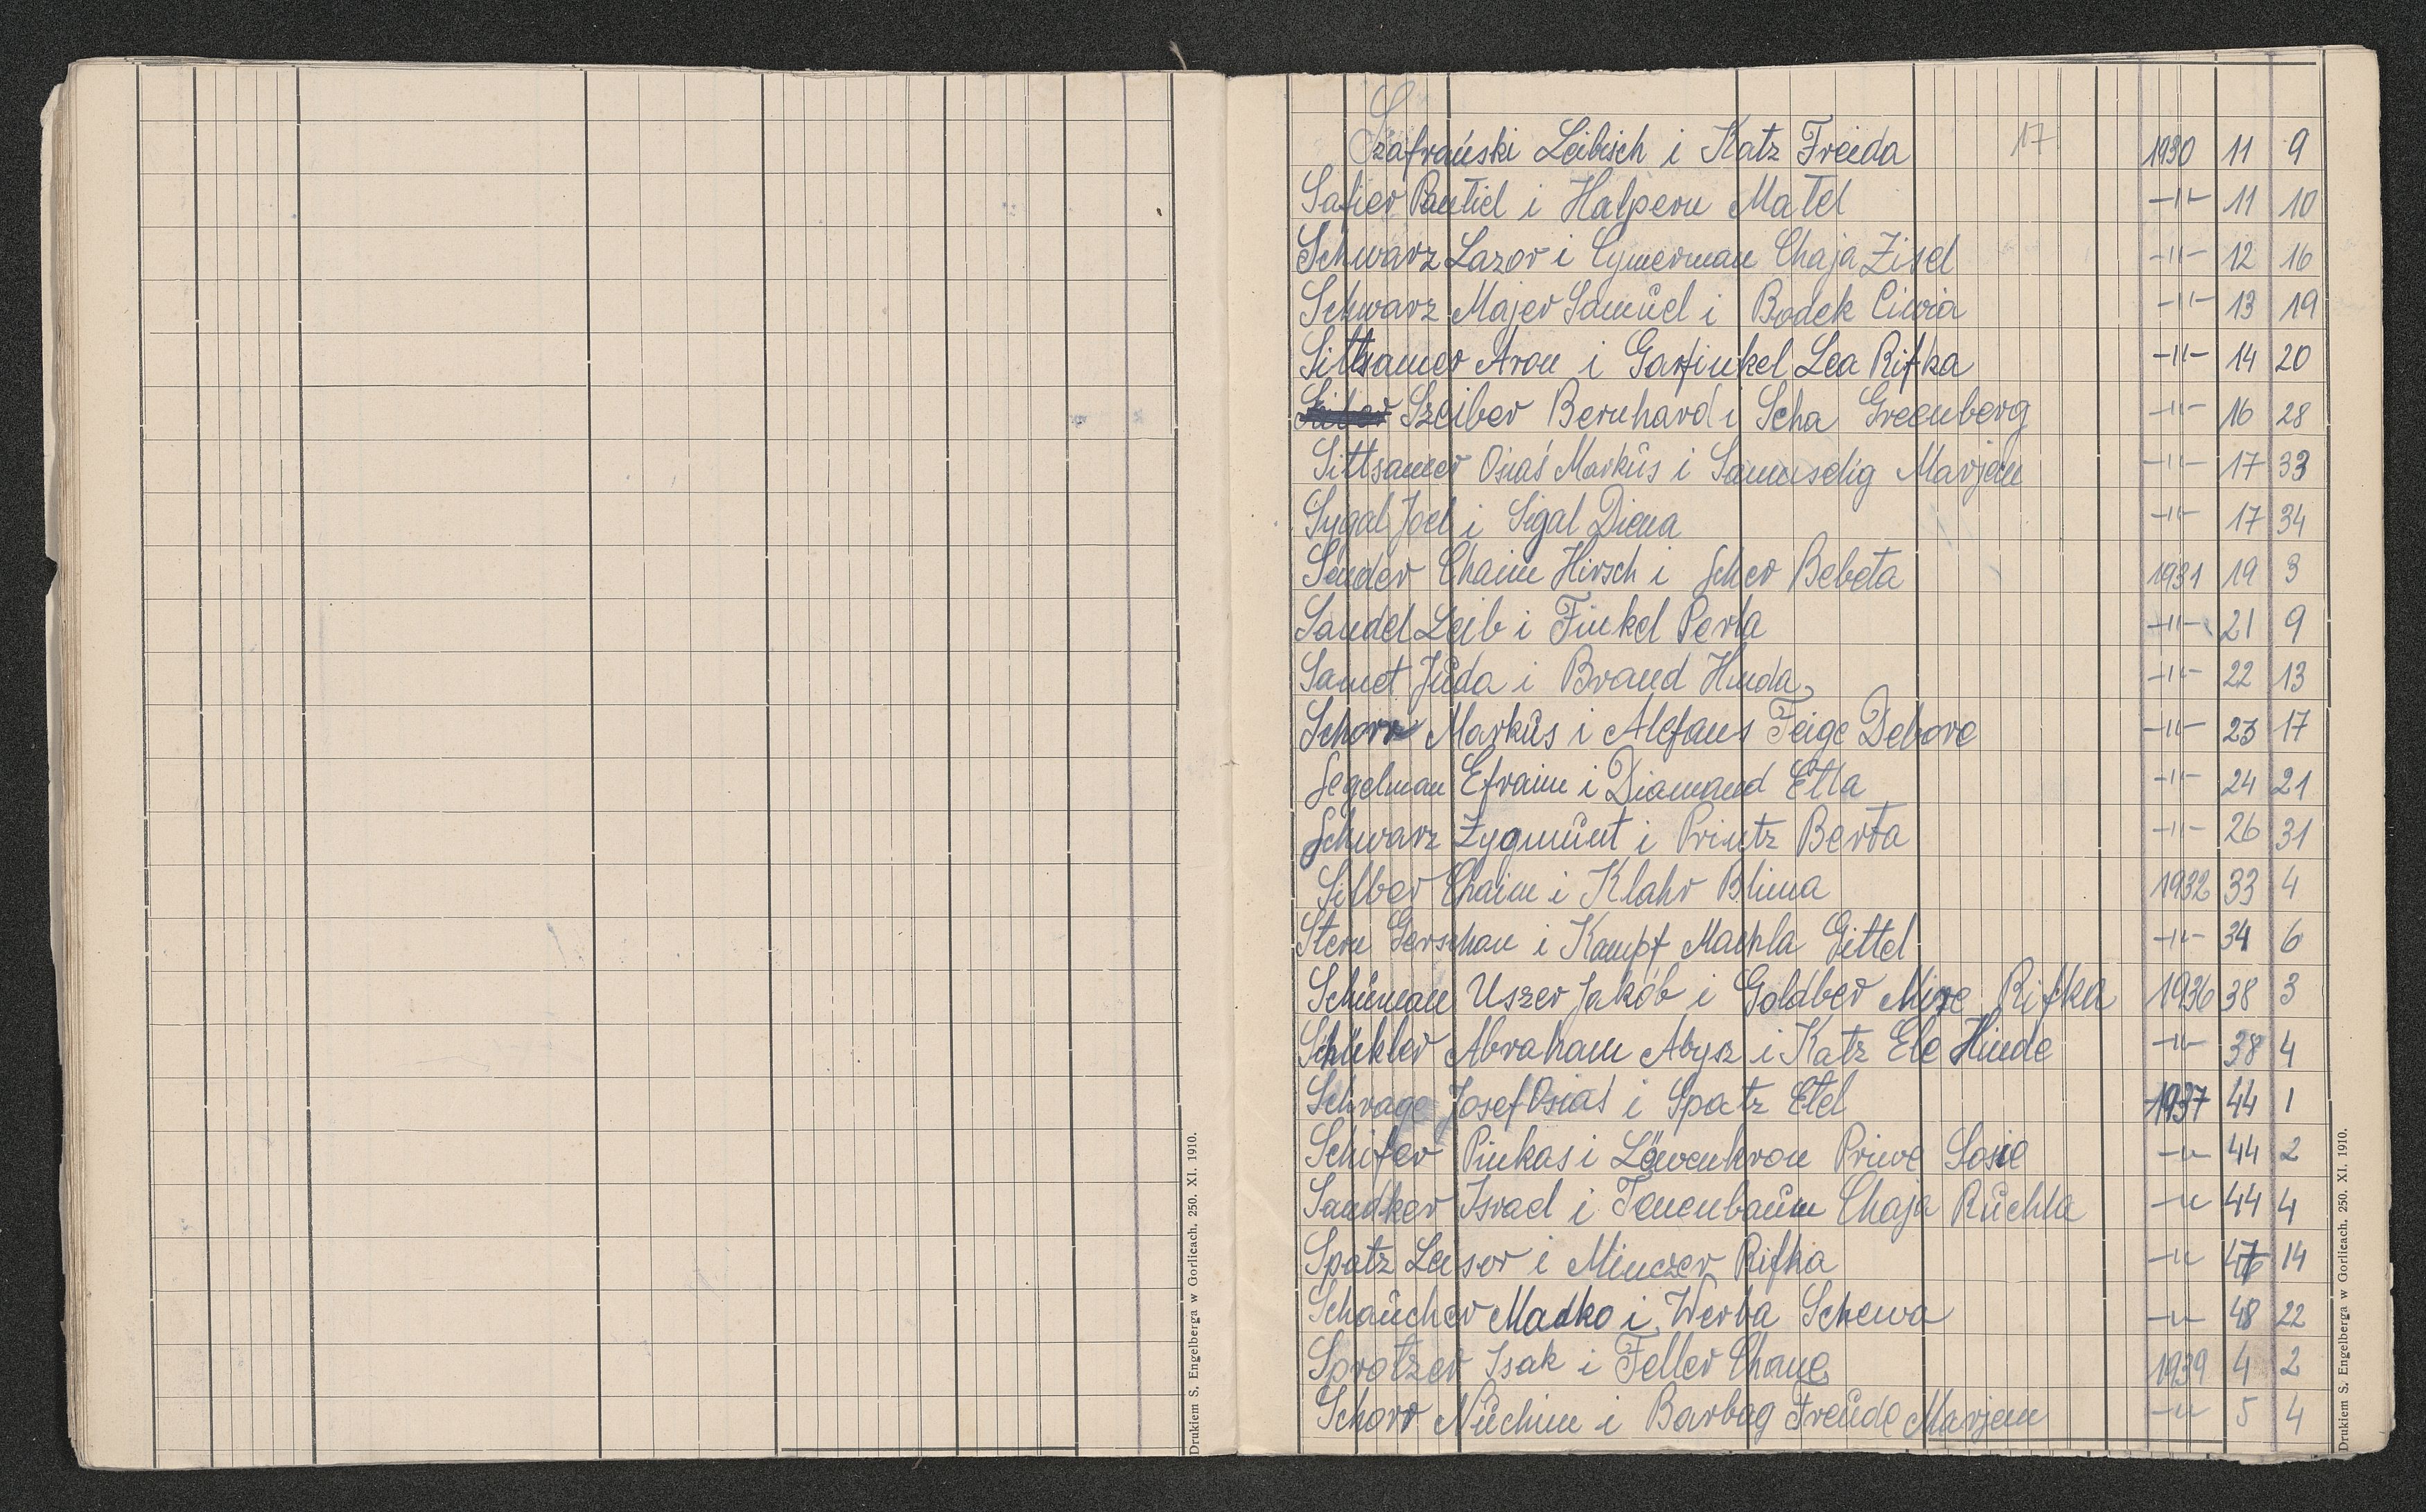 Drukiem S. Engelberga w Gorlicach. 250. XI. 1910.
S
Szafrański Leibisch i Katz Freida 17 1930 11 9
Safier Pantiel i Halpern Matel -"- 11 10
Schwarz Lazor i Cymerman Chaja Zisel -"- 12 16
Schwarz Majer Samuel i Bodek Ciwia -"- 13 19
Sittsamer Aron i Garfinkel Lea Rifka -"- 14 20
Szeiber Bernhard i Scha Greenberg -"- 16 28
Sittsamer Osiaś Markus i Marjem -"- 17 33
Sygal Joel i Sigal Diena -"- 17 34
Sender Chaim Hirsch i Scher Bebeta 1931 19 3
Sandel Leib i Finkel Perla -"- 21 9
Samet Juda i Brand Hinda -"- 22 13
Schorr Markus i Alefans Feige Debore -"- 23 17
Segelman Efraim i Diamand Etla -"- 24 21
Schwarz Zygmunt i Printz Berta -"- 26 31
Silber Chaim i Klahr Blima 1932 33 4
Stern Gerschon i Kampf Machla Gittel -"- 34 6
Schuman Uszer Jakób i Goldber Rifka 1936 38 3
Abraham Abysz i Katz Ele Hinde -"- 38 4
Schrage Josef Osias i Spatz Etel 1937 44 1
Schifer Pinkas i Löwenkron Priwe Sosie -"- 44 2
Sandker Israel i Tenenbaum Chaja Ruchla -"- 44 4
Spatz Leisor i Minczer Rifka -"- 14
Schaucher Madko i Werba Schewa -"- 48 22
Sprotzer Isak i Feller Chane 1939 4 2
Schorr Nuchim i Barbag Freude Marjem -"- 5 4
Drukiem S. Engelberga w Gorlicach. 250. XI. 1910.